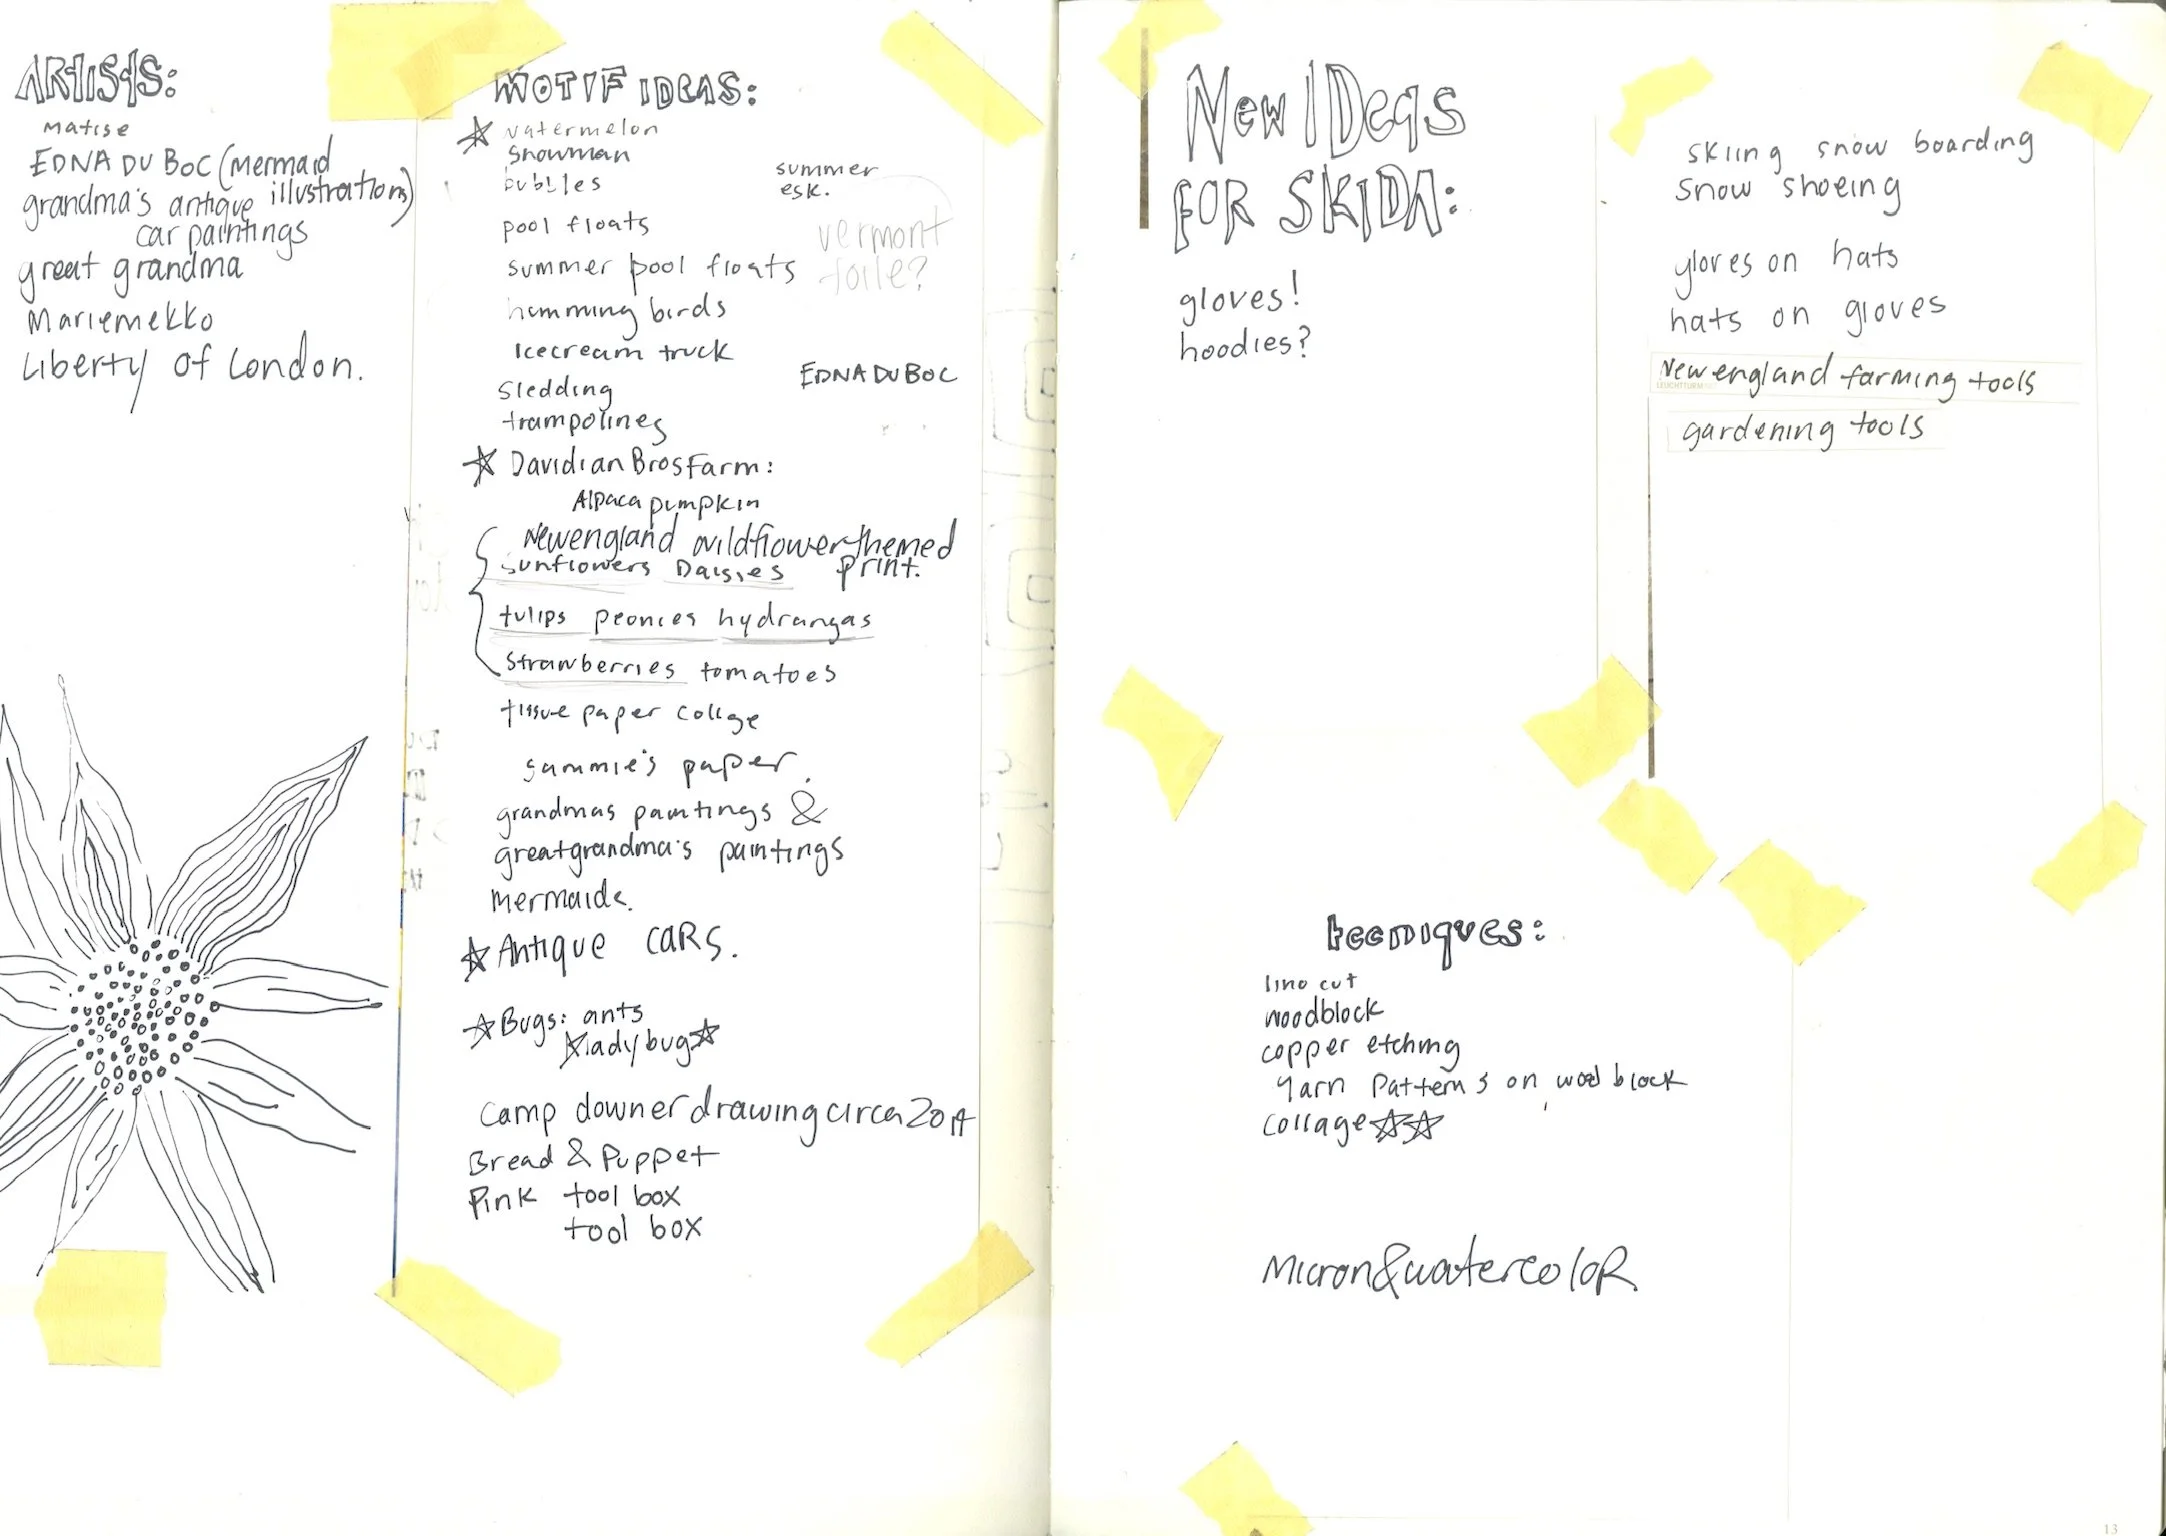 ARtists:
Matise
EDNA DU BOC (mermaid
illustrations)
grandma's antique
car paintings
great grandma
Mariemekko
Liberty of London.
MOTIF IDEAS:
watermelon
snowman
bubbles
summer
esk.
pool floats
vermont
toile?
summer pool floats
humming birds
Icecream truck
EDNA DU BOC
sledding
trampolines
Davidian Bros Farm:
Alpaca pumpkin
New england wildflower themed
print.
sunflowers Daisies
tulips peonies hydrangas
strawberries tomatoes
tissue paper collge
sammie's paper.
grandmas paintings &
greatgrandma's paintings
mermaids.
Antique CARS.
Bugs: ants
ladybug
camp downer drawing circa
Bread & Puppet
Pink tool box
tool box
New IDeas
FOR SKIDA:
gloves!
hoodies?
skiing snow boarding
snow shoeing
gloves on hats
hats on gloves
New england farming tools
LEUCHTTURM
gardening tools
techniques:
lino cut
woodblock
copper etching
yarn patterns on wood block
collage
Micron & watercoloR
13